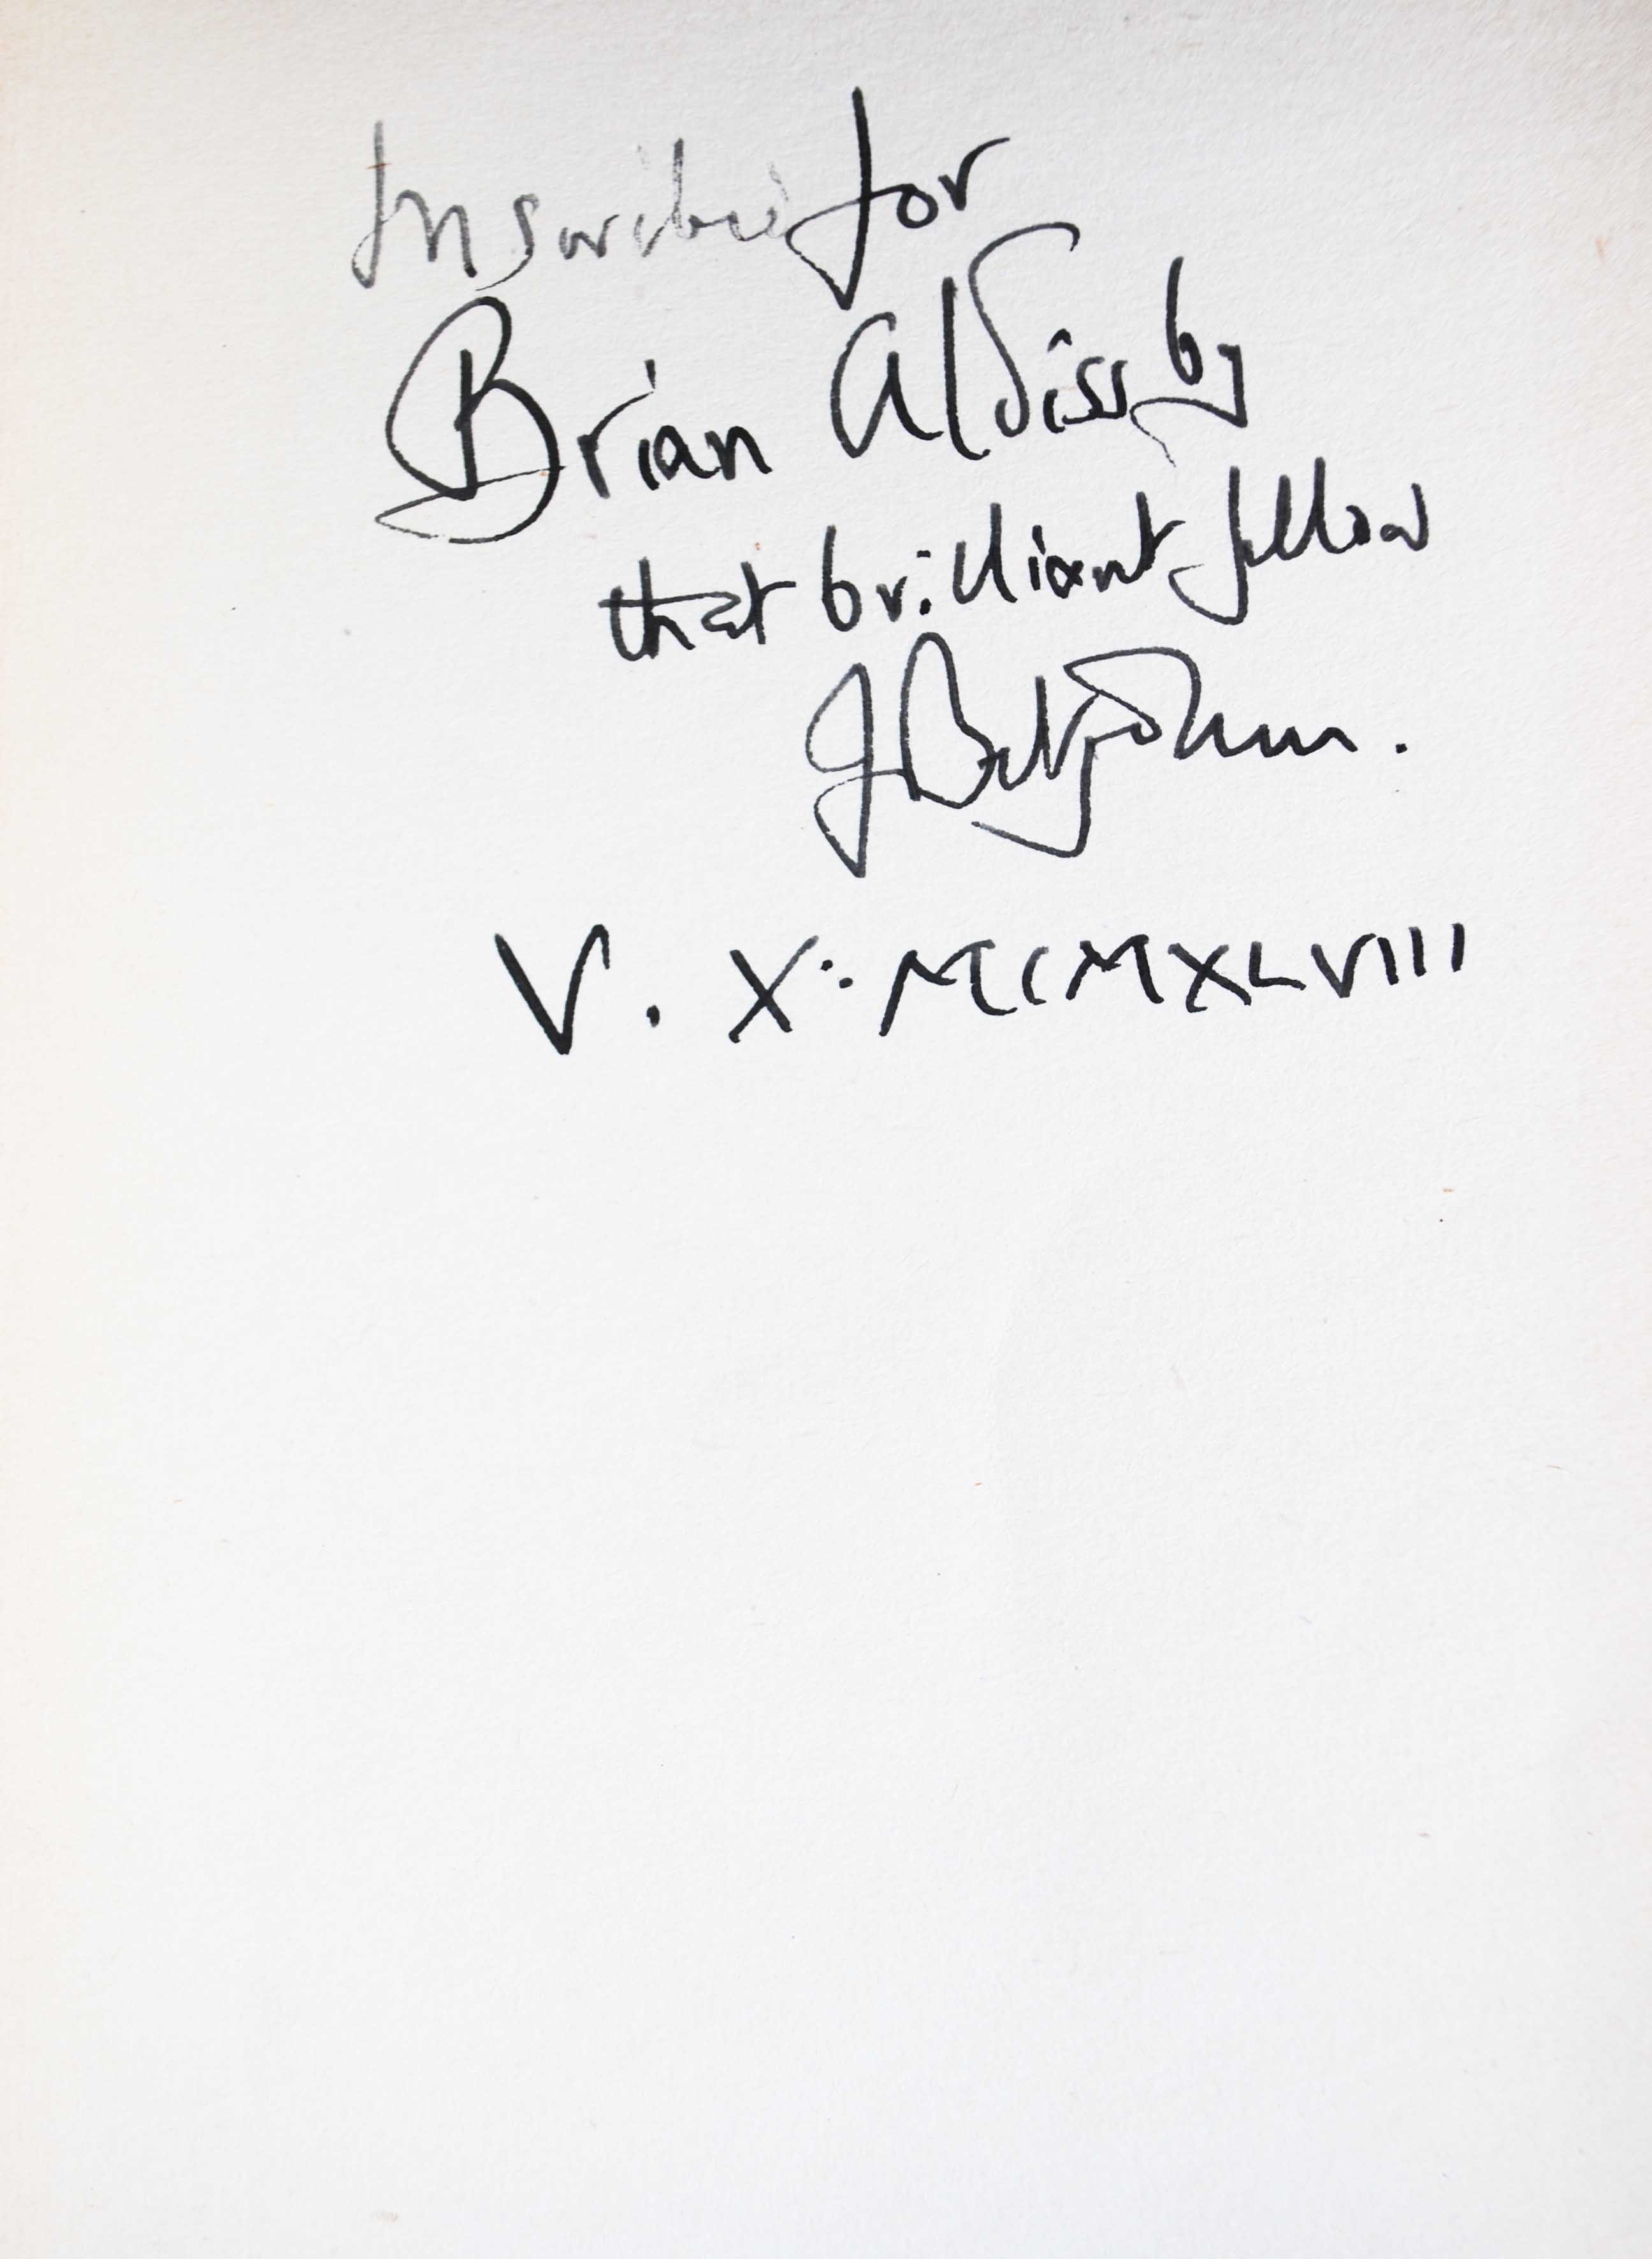 Inscribed for
Brian Aldiss by
that brilliant fellow
J Betjeman.
V. X. MCMXLVIII